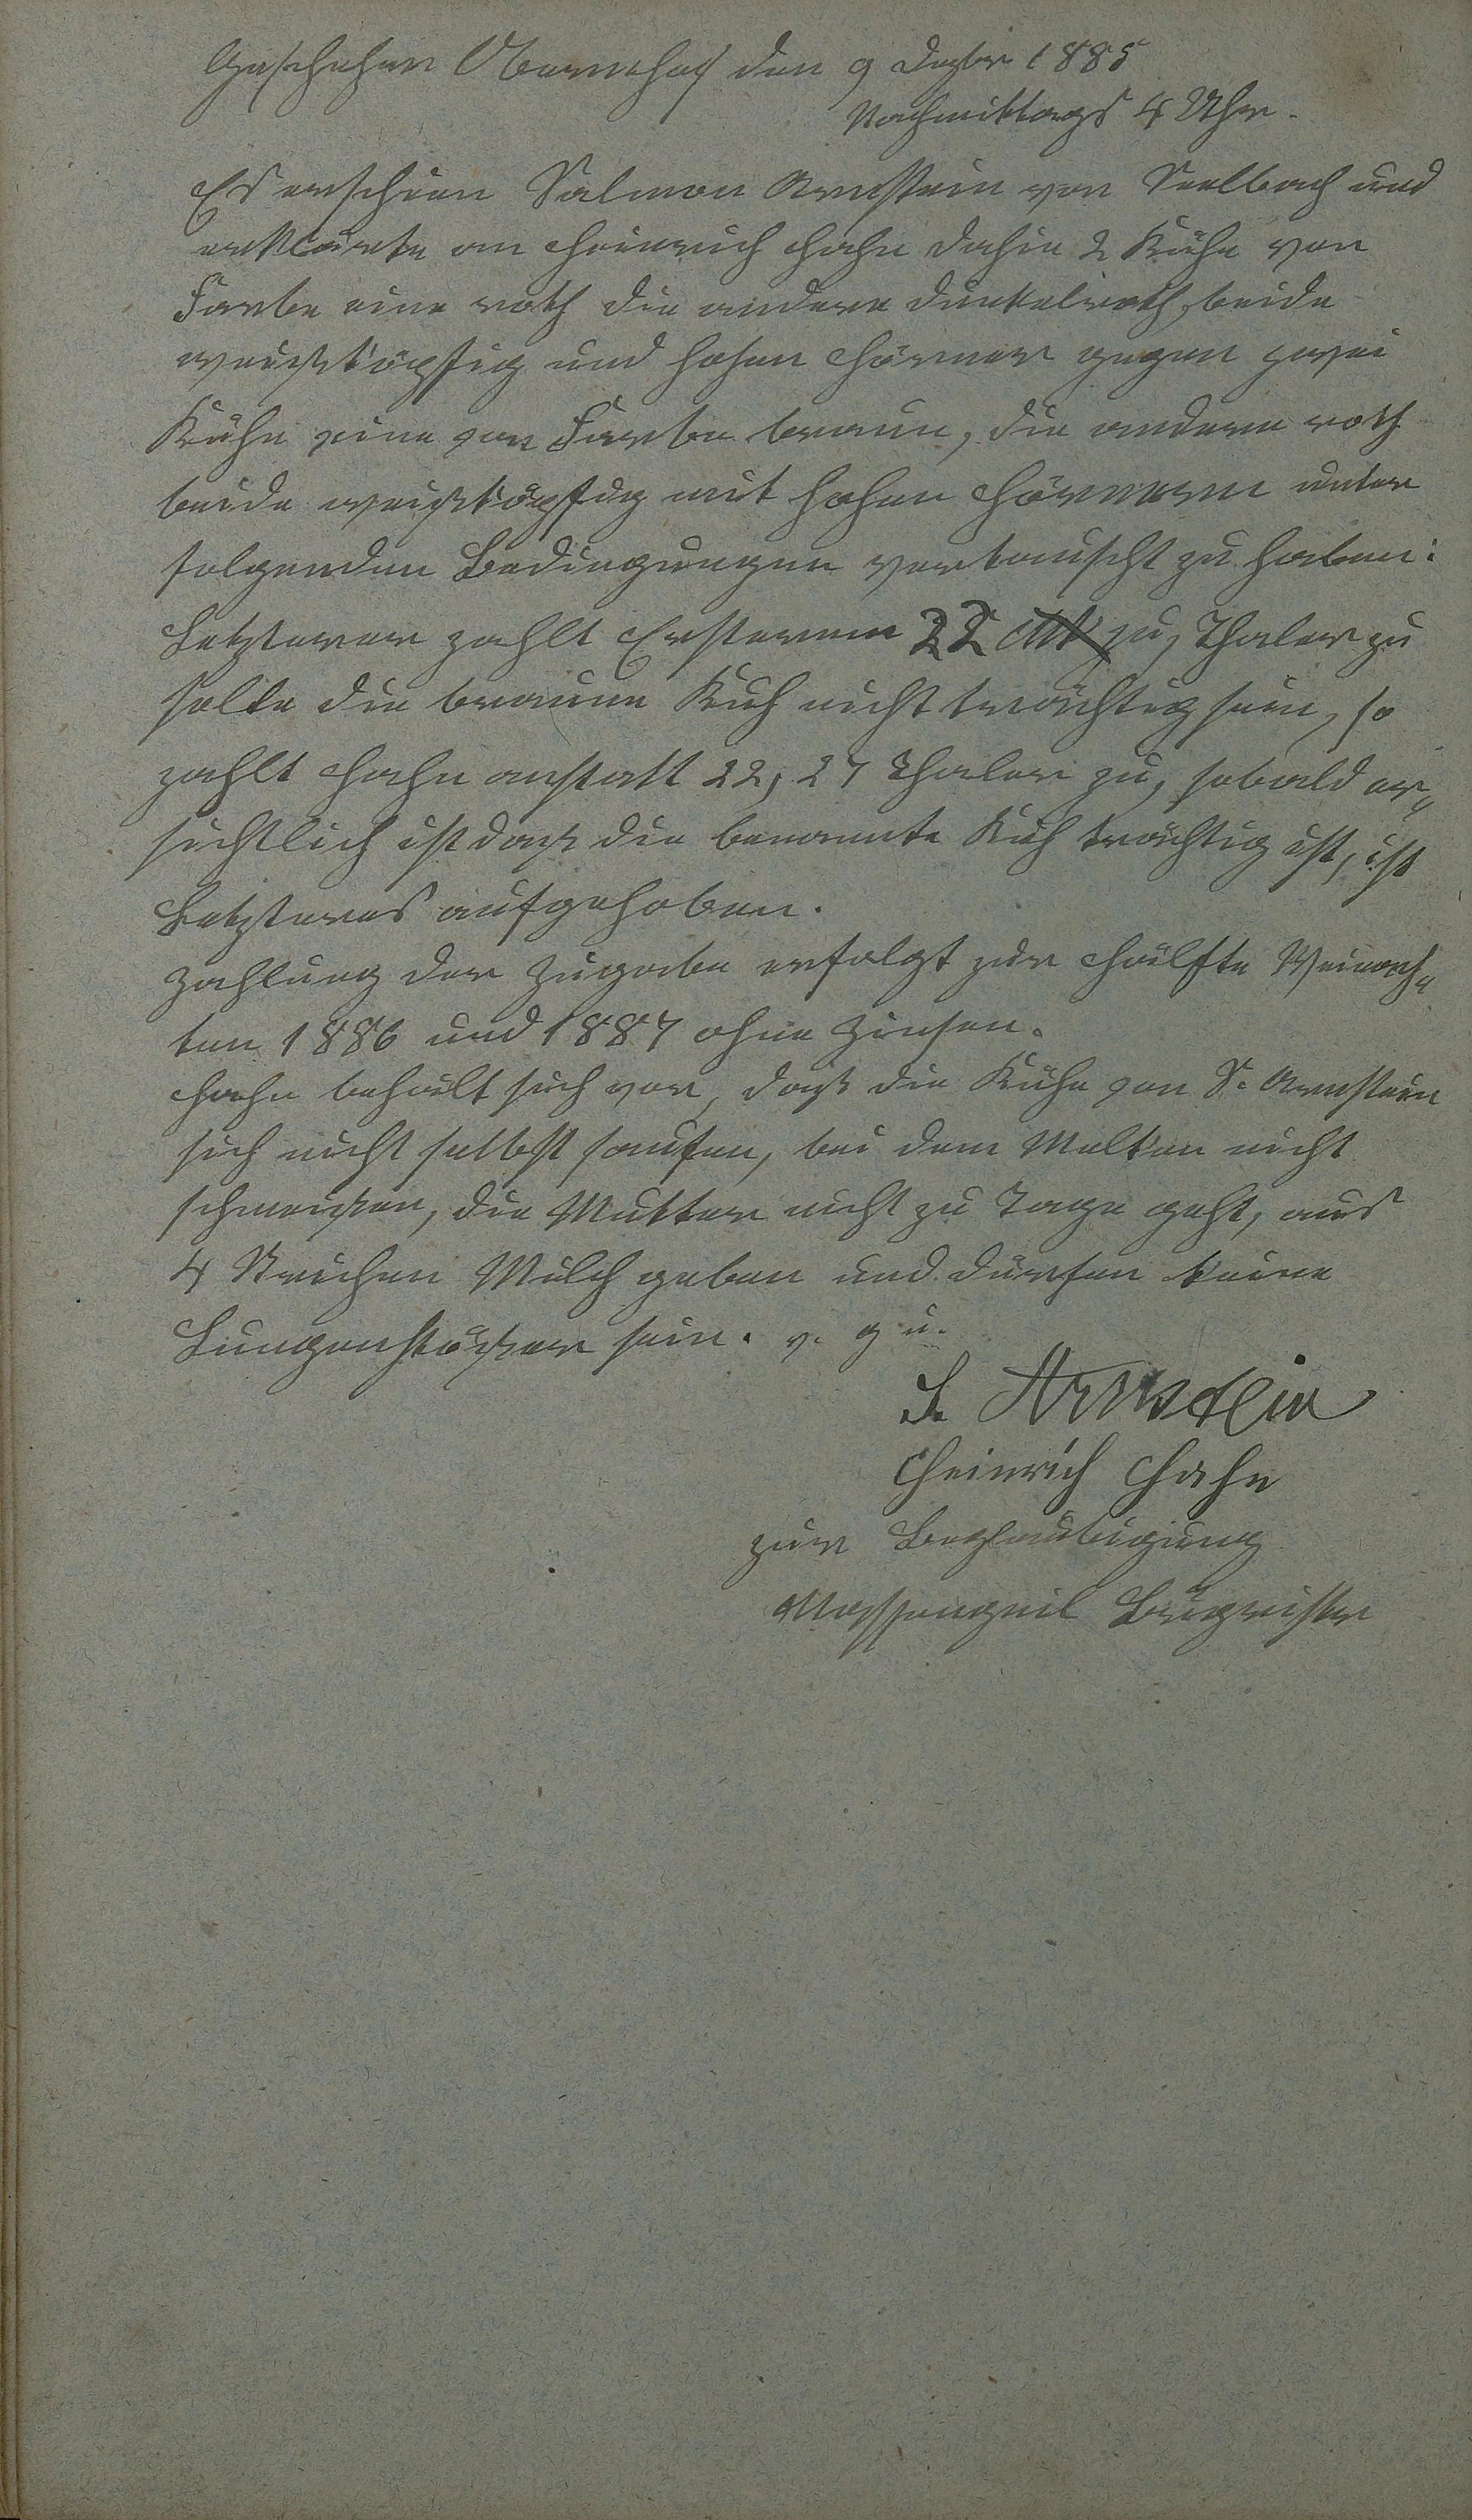 Geschehen Obernhof den 9 Dezbr 1885
Nachmittags 4 Uhr.
Es erschien Salmon Arnstein von Seelbach und
erklärte an Heinrich Hahn dahin 2 Kühe von
Farbe eine roth die andere dunkelroth, beide
weißköpfig und hohen Hörner gegen zwei
Kühe eine von Farbe braun, die andere roth
beide weißköpfig mit hohen Hörnern unter
folgenden Bedingungen vertauscht zu haben:
Letzterer zahlt Ersterem 22 Mk zu, Thaler zu
solte die braune Kuh nicht trächtig sein, so
zahlt Hahn anstatt 22, 27 Thaler zu, sobald er„
sichtlich ist daß die benannte Kuh trächtig ist, ist
Letzteres aufgehoben.
Zahlung der Zugabe erfolgt zur Hälfte Weinach„
ten 1886 und 1887 ohne Zinsen.
Hahn behält sich vor, daß die Kühe von S. Arnstein
sich nicht selbst saufen, bei dem Melken nicht
schmeißen, die Mutter nicht zu Tage geht, aus
4 Strichen Milch geben und dürfen keine
Lungenstößer sein. v. g u.
S. Arnstein
Heinrich Hahn
zur Beglaubigung
Massengeil Bürgmister